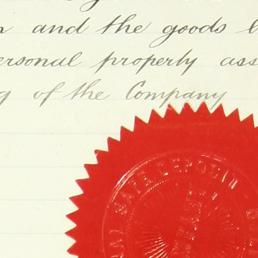 and the goods
ersonal property ass
g of the Company
SAFE DEPOSIT